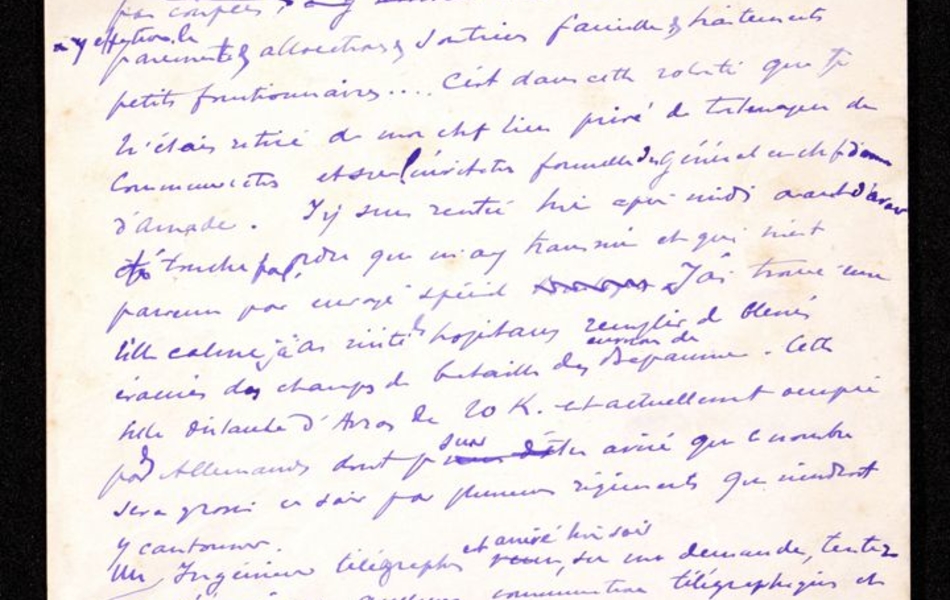 par couples,
payements allocations soutien famille & traitements
petits fonctionnaires.... C'est dans cette volonté que je
m'étais retiré de mon chef lieu privé de tout moyen de
communication et sur l'invitation formelle du Général en chef
d'Amade. J'y suis rentré hier après midi avant d'avoir
été touché par ordre que m'ay transmis et qui m'est
parvenu par envoyé spécial J'ai trouvé une
ville calme, j'ai visité les hopitaux remplis de blessés
évacués des champs de bataille des environs de Bapaume. Cette
ville distante d'Arras de 20 K. est actuellement occupée
par des Allemands dont je suis avisé que le nombre
sera grossi ce soir par plusieurs régiments qui viendront
y cantonner.
Un Ingénieur télégraphe et arrivé hier soir, sur ma demande, tenter
communication télégraphiques et